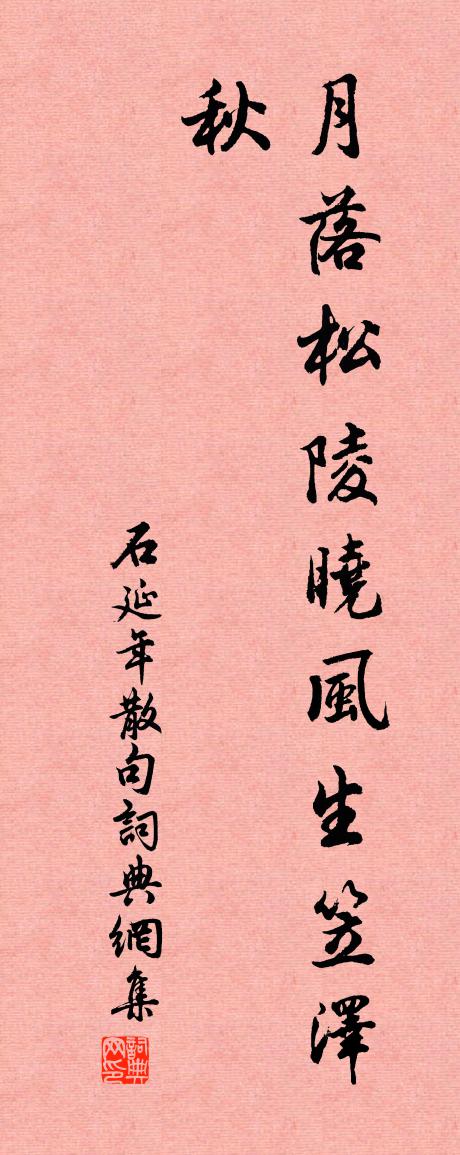 月落松陵曉風生笠澤
秋
石延年散句詞典網集
詞典
网印